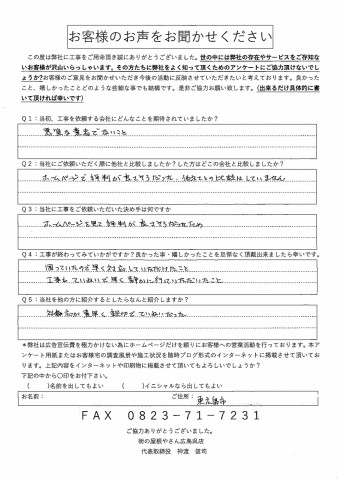 お客様のお声をお聞かせください
この度は弊社に工事をご用命頂き誠にありがとうございました。世の中には弊社の存在やサービスをご存知な
いお客様が沢山いらっしゃいます。その方たちに弊社をよく知って頂くためのアンケートにご協力頂けないでし
ょうか?お客様のご意見をお聞かせいただき今後の活動に反映させていただきたいと考えております。良かった
こと、嬉しかったことどのような些細な事でも結構です。是非ご協力お願い致します。(出来るだけ具体的に書
いて頂ければ幸いです)
Q1:当初、工事を依頼する会社にどんなことを期待されていましたか?
悪質な業者でないこと
Q2:当社にご依頼いただく際に他社と比較しましたか?した方はどこの会社と比較しましたか?
ホームページで評判が良さそうだった、他社との比較はしていません
Q3:当社に工事をご依頼いただいた決め手は何ですか
ホームページを見て評判が良さそうだったため
Q4:工事が終わってみていかがですか?良かった事・嬉しかったことを忌憚なく頂戴出来ましたら幸いです。
困っていたので早く対応していただけたこと
工事もていねいで早く静かに行っていただいたこと
Q5:当社を他の方に紹介するとしたらなんと紹介しますか?
対応が素早く親切でていねいだった
*弊社は広告宣伝費を極力かけない為にホームページだけを頼りにお客様への営業活動を行っております。本ア
ンケート用紙またはお客様宅の調査風景や施工状況を随時ブログ形式のインターネットに掲載させて頂いてお
ります。上記内容をインターネットや印刷物に掲載させて頂いてもよろしいでしょうか?
下記の中から〇印をお付下さい。
( )名前を出してもよい ( )イニシャルなら出してもよい
お名前: ご住所: 東広島市
FAX 0823-71-7231
ご協力ありがとうございました。
街の屋根やさん広島呉店
代表取締役 神渡 信司